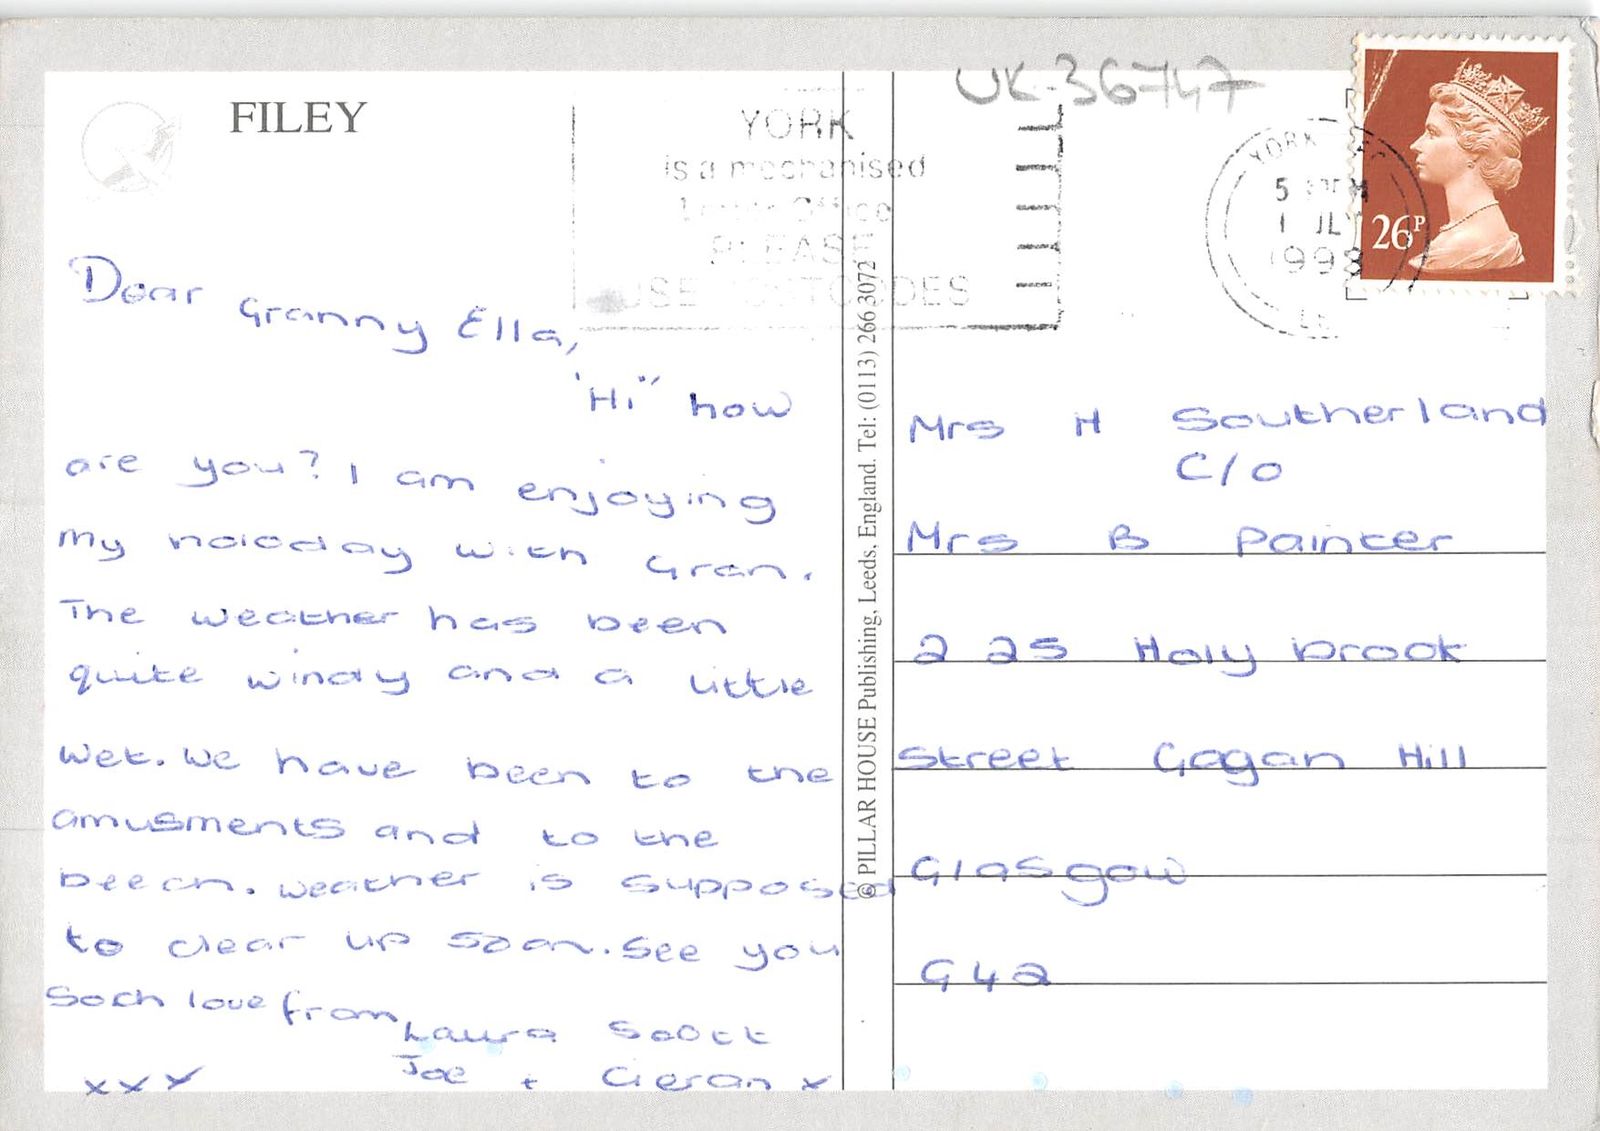 FILEY
UK-36747
YORK
is a mechanised
Letter Office
PLEASE
USE POSTCODES
YORK
5
1 JLY
1998
26P
Dear Granny Ella,
"Hi" how
are you? I am enjoying
my holoday with Gran.
The weather has been
quite windy and a little
wet. We have been to the
amusments and to the
beech. weather is supposed
to clear up soon. See you
Soon love from
Laura Scott
Joe + Cieran x
xxx
© PILLAR HOUSE Publishing, Leeds, England. Tel: (0113) 266 3072
Mrs H Southerland
C/o
Mrs B Painter
2 25 Holy brook
street Gogan Hill
Glasgow
G42